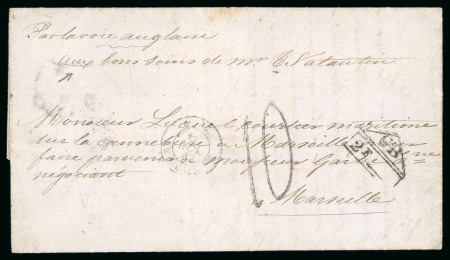 Par la voie anglaise
aux bons soins de mr E Valantin
Monsieur courtier maritime
sur la cannebière a Marseille pour
faire parvenir a monsieur
negociant
10
GB
2F
Marseille